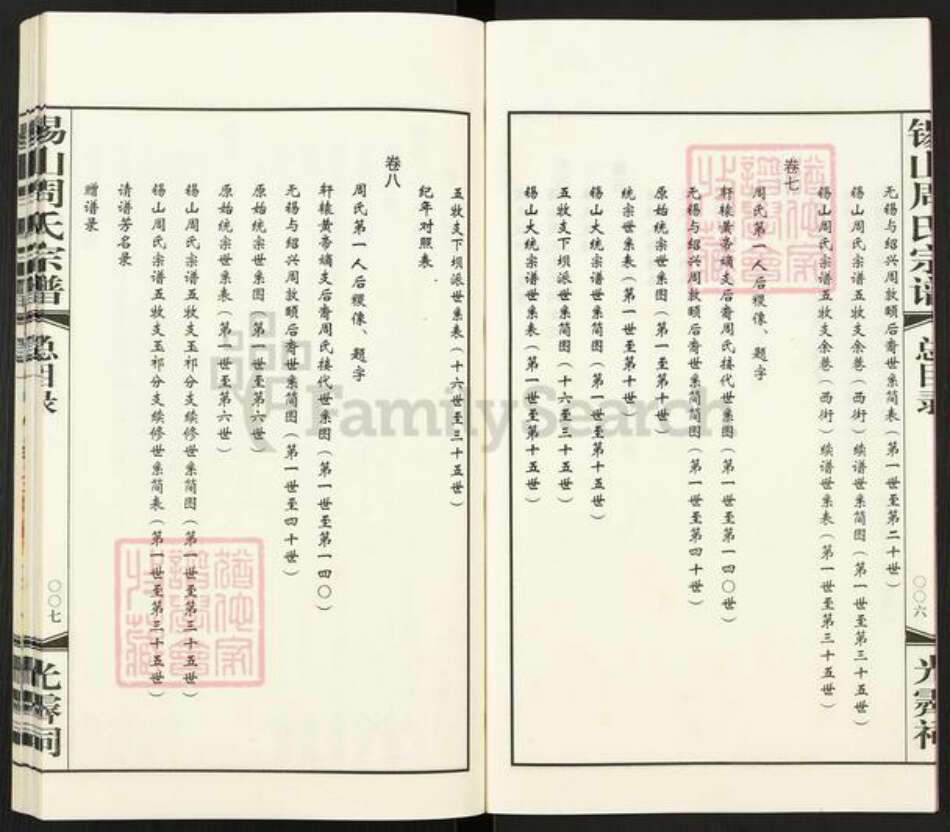 锡山周氏宗谱
总目录
〇〇六
无锡与绍兴周敦颐后裔世系简表（第一世至第二十世）
锡山周氏宗谱五牧支余巷（西街）续谱世系简图（第一世至第三十五世）
锡山周氏宗谱五牧支余巷（西街）续谱世系表（第一世至第三十五世）
卷七
周氏第一人后稷像、题字
轩辕黄帝嫡支后裔周氏接代世系图（第一世至第一四〇世）
无锡与绍兴周敦颐后裔世系简图（第一世至第四十世）
原始统宗世系图（第一至第十世）
统宗世系表（第一世至第十世）
锡山大统宗谱世系简图（第一世至第十五世）
五牧支下坝派世系简图（十六至三十五世）
锡山大统宗谱世系表（第一世至第十五世）
五牧支下坝派世系表（十六世至三十五世）
纪年对照表
卷八
周氏第一人后稷像、题字
轩辕黄帝嫡支后裔周氏接代世系图（第一世至第一四〇）
无锡与绍兴周敦颐后裔世系简图（第一世至四十世）
原始统宗世系图（第一世至第六世）
原始统宗世系表（第一世至第六世）
锡山周氏宗谱五牧支玉祁分支续修世系简图（第一世至第三十五世）
锡山周氏宗谱五牧支玉祁分支续修世系简表（第一世至第三十五世）
请谱芳名录
赠谱录
锡山周氏宗谱
总目录
〇〇七
光霁祠
FamilySearch